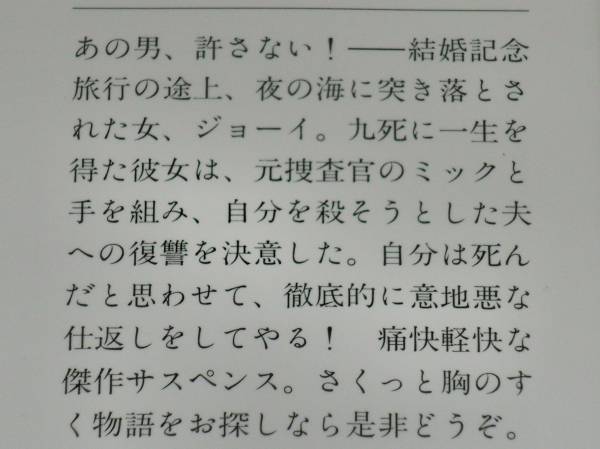 あの男、許さない！――結婚記念
旅行の途上、夜の海に突き落とさ
れた女、ジョーイ。九死に一生を
得た彼女は、元捜査官のミックと
手を組み、自分を殺そうとした夫
への復讐を決意した。自分は死ん
だと思わせて、徹底的に意地悪な
仕返しをしてやる！　痛快軽快な
傑作サスペンス。さくっと胸のす
く物語をお探しなら是非どうぞ。